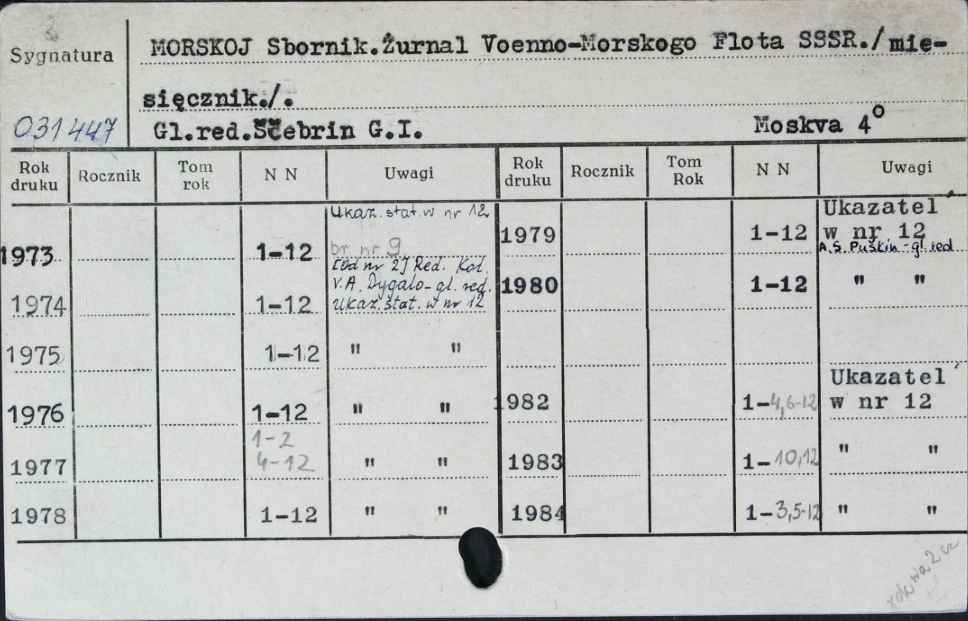 Sygnatura
MORSKOJ Sbornik.Žurnal Voenno-Morskogo Flota SSSR./mie-
sięcznik./.
031447
Gl.red.Ščebrin G.I.
Moskva 4°
Rok druku Rocznik Tom rok N N Uwagi
1973 1-12 Ukaz. stat. w nr 12
br nr 9
[od nr 2] Red. Kol.
V.A. Dygalo - gl. red.
1974 1-12 Ukaz. stat. w nr 12
1975 1-12 " "
1976 1-12 " "
1977 1-2
4-12 " "
1978 1-12 " "
Rok druku Rocznik Tom Rok N N Uwagi
Ukazatel´
1979 1-12 w nr 12
A.S. Puškin - gl. red
1980 1-12 " "
Ukazatel´
1982 1-4,6-12 w nr 12
1983 1-10,12 " "
1984 1-3,5-12 " "